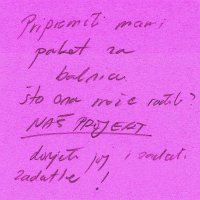 Pripremiti mami
paket za
bolnicu
što ona može raditi?
NAŠ PROJEKT
donijeti joj i zadati
zadatke !